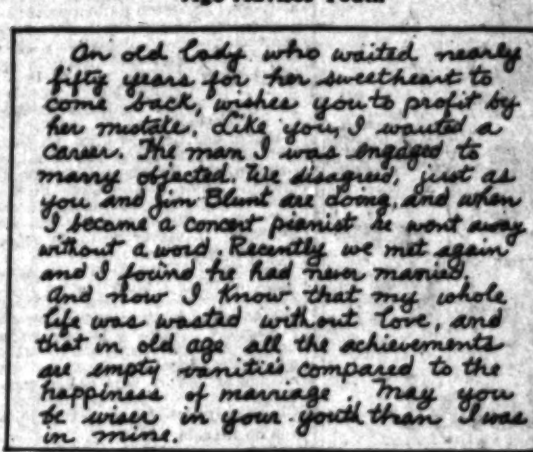 An old lady who waited nearly
fifty years for her sweetheart to
come back, wishes you to profit by
her mistake. Like you, I wanted a
career. The man I was engaged to
marry objected. We disagreed, just as
you and Jim Blunt are doing, and when
I became a concert pianist he went away
without a word. Recently we met again
and I found he had never married.
And now I know that my whole
life was wasted without love, and
that in old age all the achievements
are empty vanities compared to the
happiness of marriage. May you
be wiser in your youth than I was
in mine.